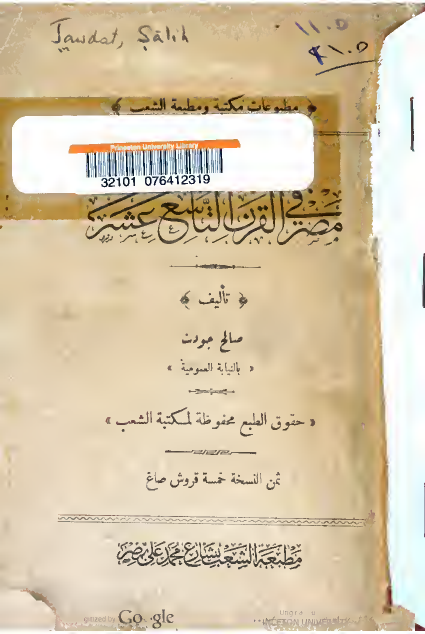 Jawdat, Ṣāliḥ
١١٠٥
٢١٠٥
﴿ مطبوعات مكتبة ومطبعة الشعب ﴾
Princeton University Library
32101 076412319
مصر في القرن التاسع عشر
﴿ تأليف ﴾
صالح جودت
« بالنيابة العمومية »
« حقوق الطبع محفوظة لمكتبة الشعب »
ثمن النسخة خمسة قروش صاغ
مطبعة الشعب بشارع محمد علي بمصر
Digitized by Google
PRINCETON UNIVERSITY